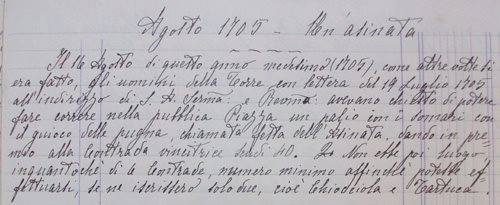 Agosto 1705 - Un'asinata
Il 16 Agosto di questo anno medesimo (1705), come altre volte si
era fatto, gli uomini della Torre con lettera del 19 Luglio 1705
all'indirizzo di S. A. Serma: e Revma: avevano chiesto di potere
fare correre nella pubblica Piazza un palio con i somari con
il giuoco delle pugna, chiamata festa dell'Asinata, dando in pre-
mio alla Contrada vincitrice scudi 40. Non ebbe poi luogo
inquantochè di 6 Contrade, numero minimo affinchè potesse ef-
fettuarsi, se ne iscrissero solo due, cioè Chiocciola e Tartuca.